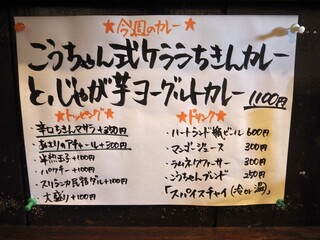 ★今週のカレー★
ごうちゃん式ケララちきんカレー
と、じゃが芋ヨーグルトカレー 1,100円
★トッピング★
・辛口ちきんマサラ +350円
・あさりのアチャール +300円
・半熟玉子 +100円
・パクチー +100円
・スリランカ風豆ダル +100円
・大盛り +100円
★ドリンク★
・ハートランド瓶ビール 600円
・マンゴージュース 300円
・ラムネクファーサー 300円
・ごうちゃんブレンド 250円
「スパイスチャイ(冷or温)